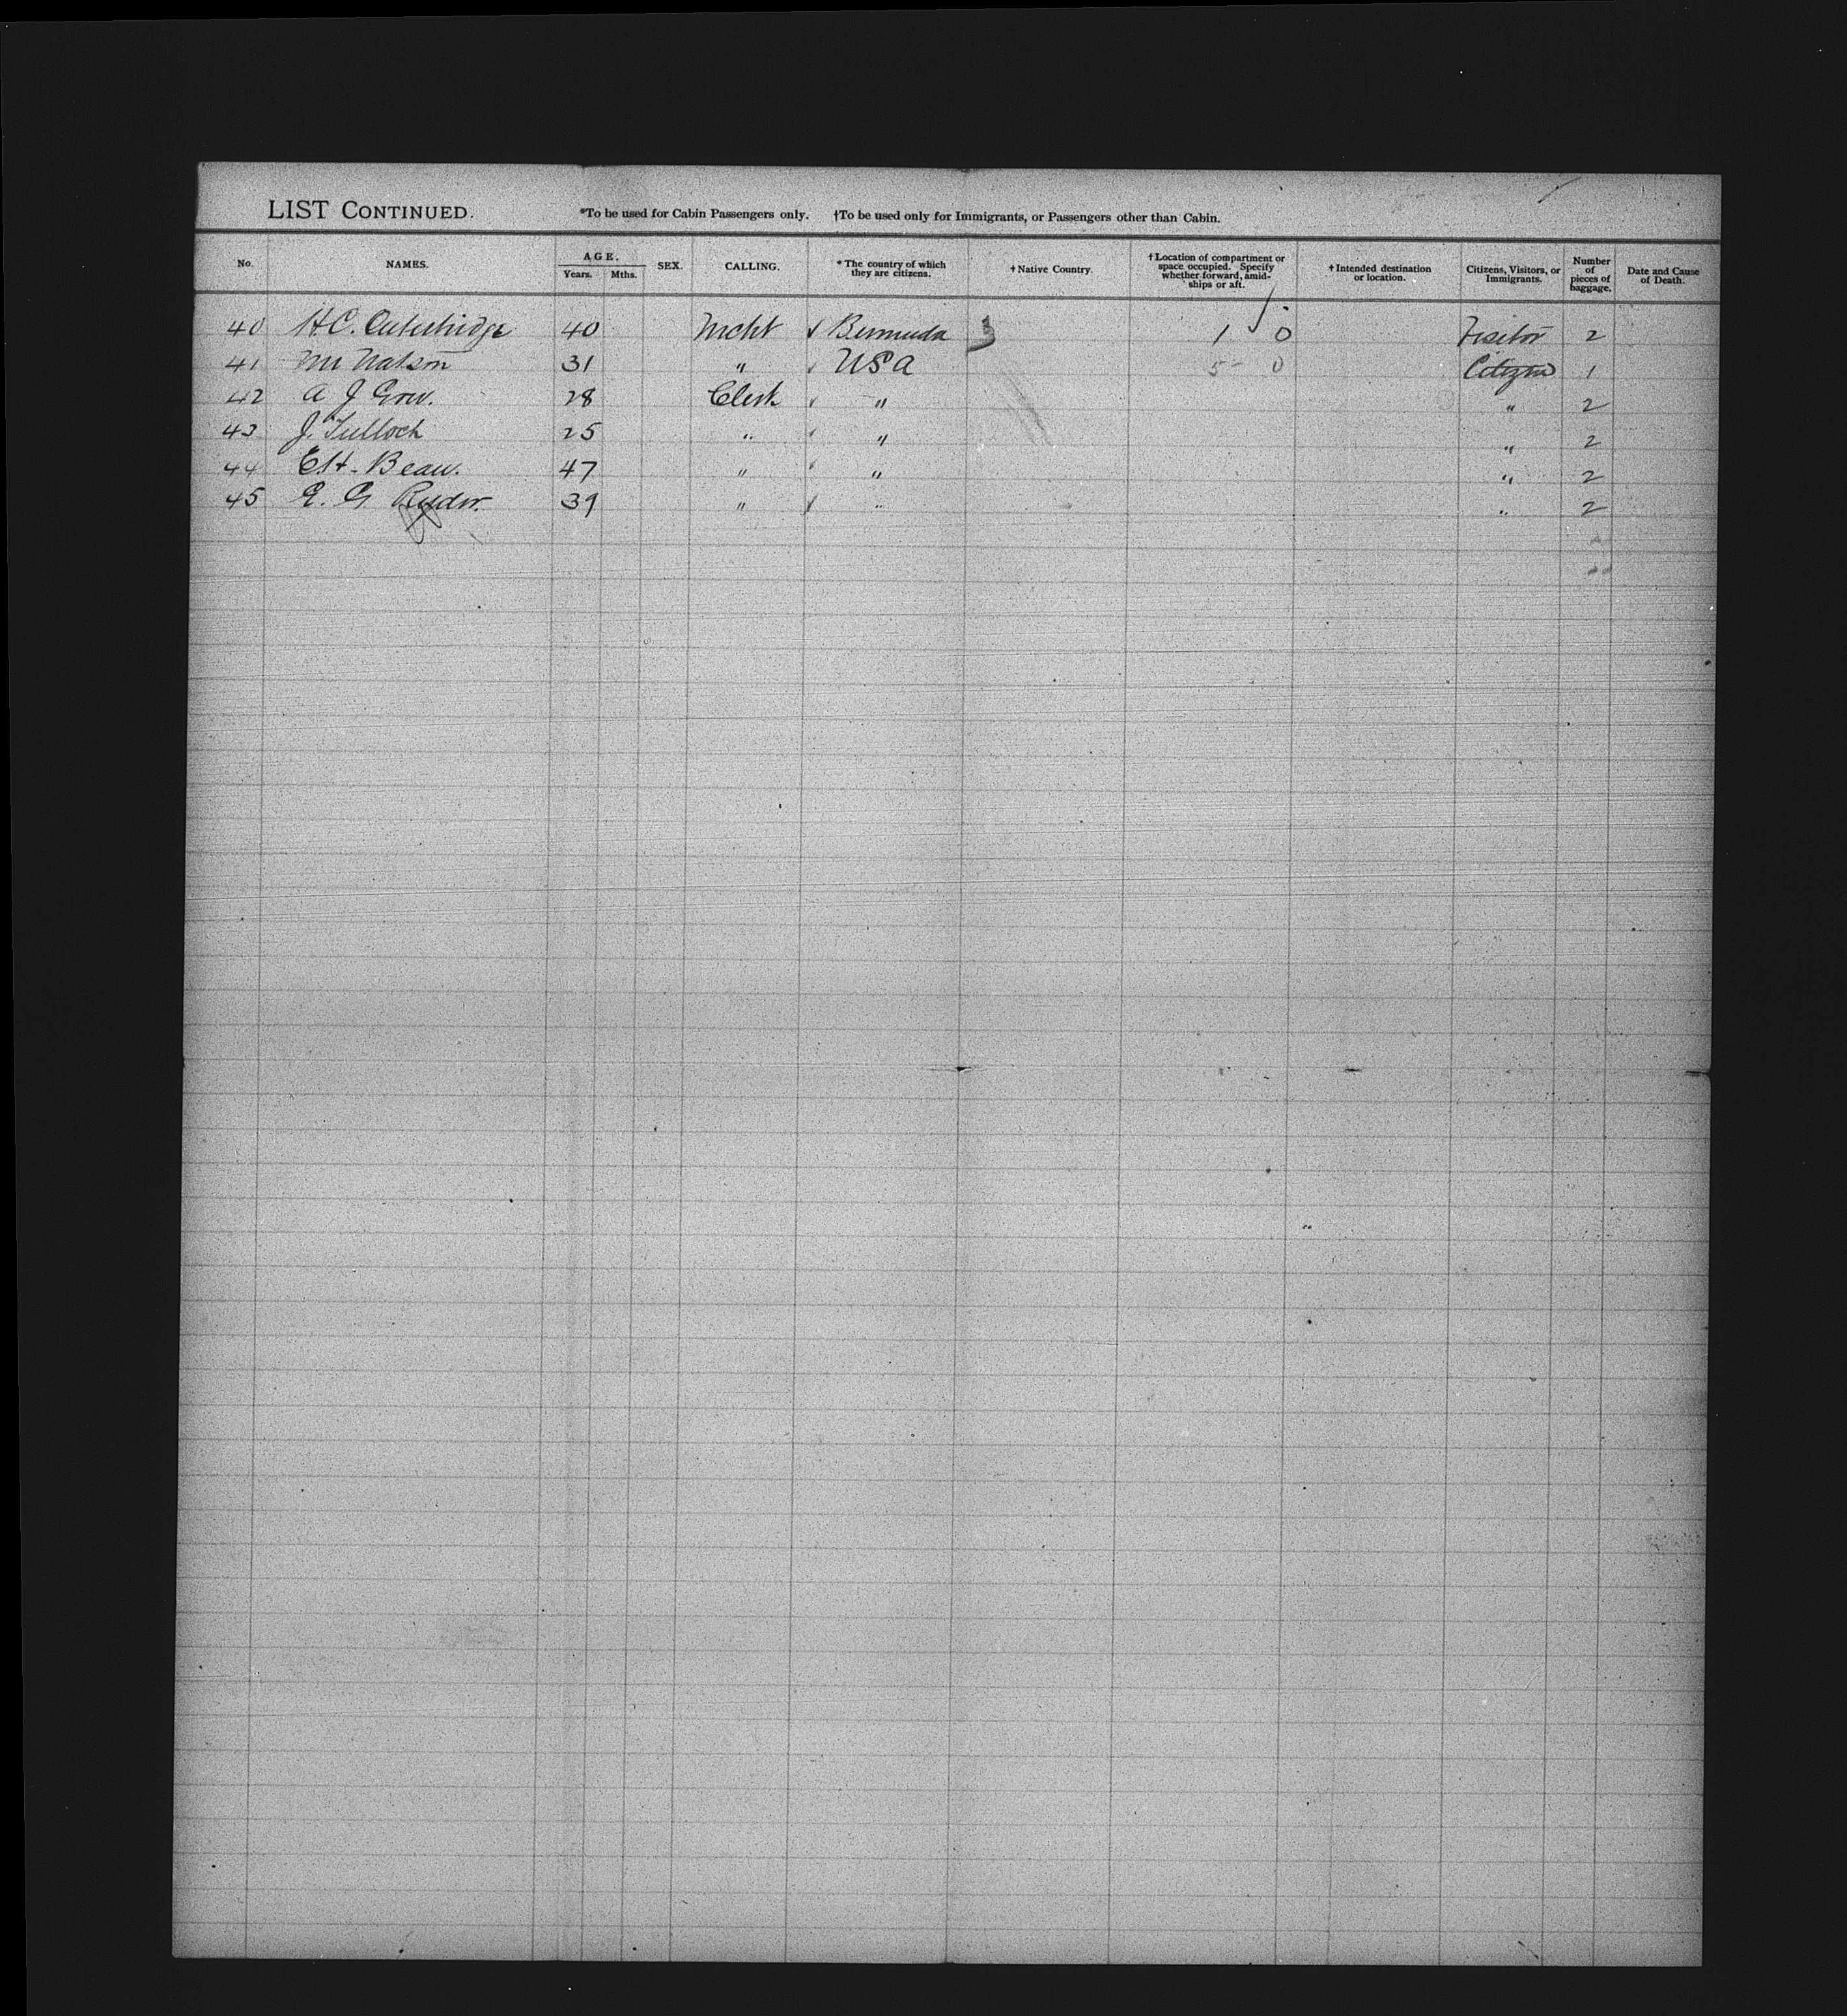 LIST CONTINUED. *To be used for Cabin Passengers only. †To be used only for Immigrants, or Passengers other than Cabin.
No. NAMES. AGE. Years. Mths. SEX. CALLING. * The country of which they are citizens. † Native Country. † Location of compartment or space occupied. Specify whether forward, amidships or aft. † Intended destination or location. Citizens, Visitors, or Immigrants. Number of pieces of baggage. Date and Cause of Death.
40 H.C. Outerbridge 40 Mcht ✓ Bermuda 3 1 0 Visitor 2
41 M Watson 31 " ✓ USA 5 - 0 Citizen 1
42 A J Grow. 28 Clerk ✓ " " 2
43 J. Tulloch 25 " ✓ " " 2
44 E.H. Bean. 47 " ✓ " " 2
45 E. G Ryder. 39 " ✓ " " 2